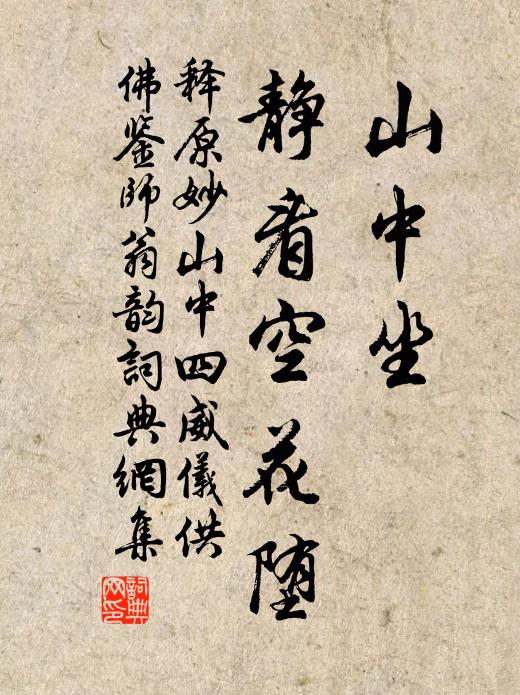 山中坐
静看空花堕
释原妙山中四威仪供
佛鉴师翁韵詞典網集
詞典
网印